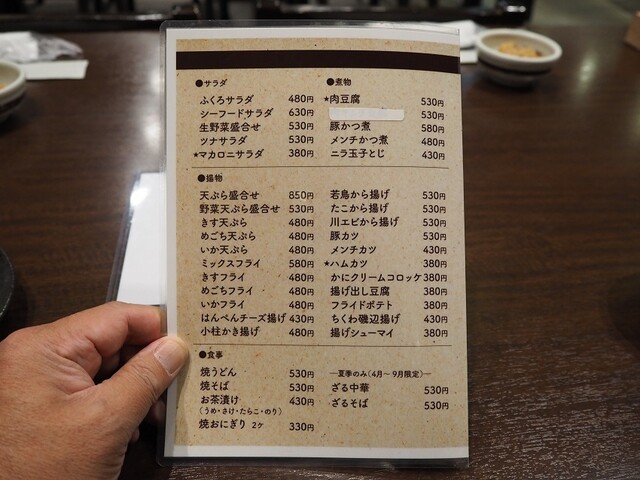 ●サラダ
ふくろサラダ 480円
シーフードサラダ 630円
生野菜盛合せ 530円
ツナサラダ 530円
★マカロニサラダ 380円
●煮物
★肉豆腐 530円
530円
豚かつ煮 580円
メンチかつ煮 480円
ニラ玉子とじ 430円
●揚物
天ぷら盛合せ 850円
野菜天ぷら盛合せ 530円
きす天ぷら 480円
めごち天ぷら 480円
いか天ぷら 480円
ミックスフライ 580円
きすフライ 480円
めごちフライ 480円
いかフライ 480円
はんぺんチーズ揚げ 430円
小柱かき揚げ 480円
若鳥から揚げ 530円
たこから揚げ 530円
川エビから揚げ 530円
豚カツ 530円
メンチカツ 430円
★ハムカツ 380円
かにクリームコロッケ 380円
揚げ出し豆腐 380円
フライドポテト 380円
ちくわ磯辺揚げ 430円
揚げシューマイ 380円
●食事
焼うどん 530円
焼そば 530円
お茶漬け 430円
(うめ・さけ・たらこ・のり)
焼おにぎり 2ケ 330円
―夏季のみ(4月～9月限定)―
ざる中華 530円
ざるそば 530円